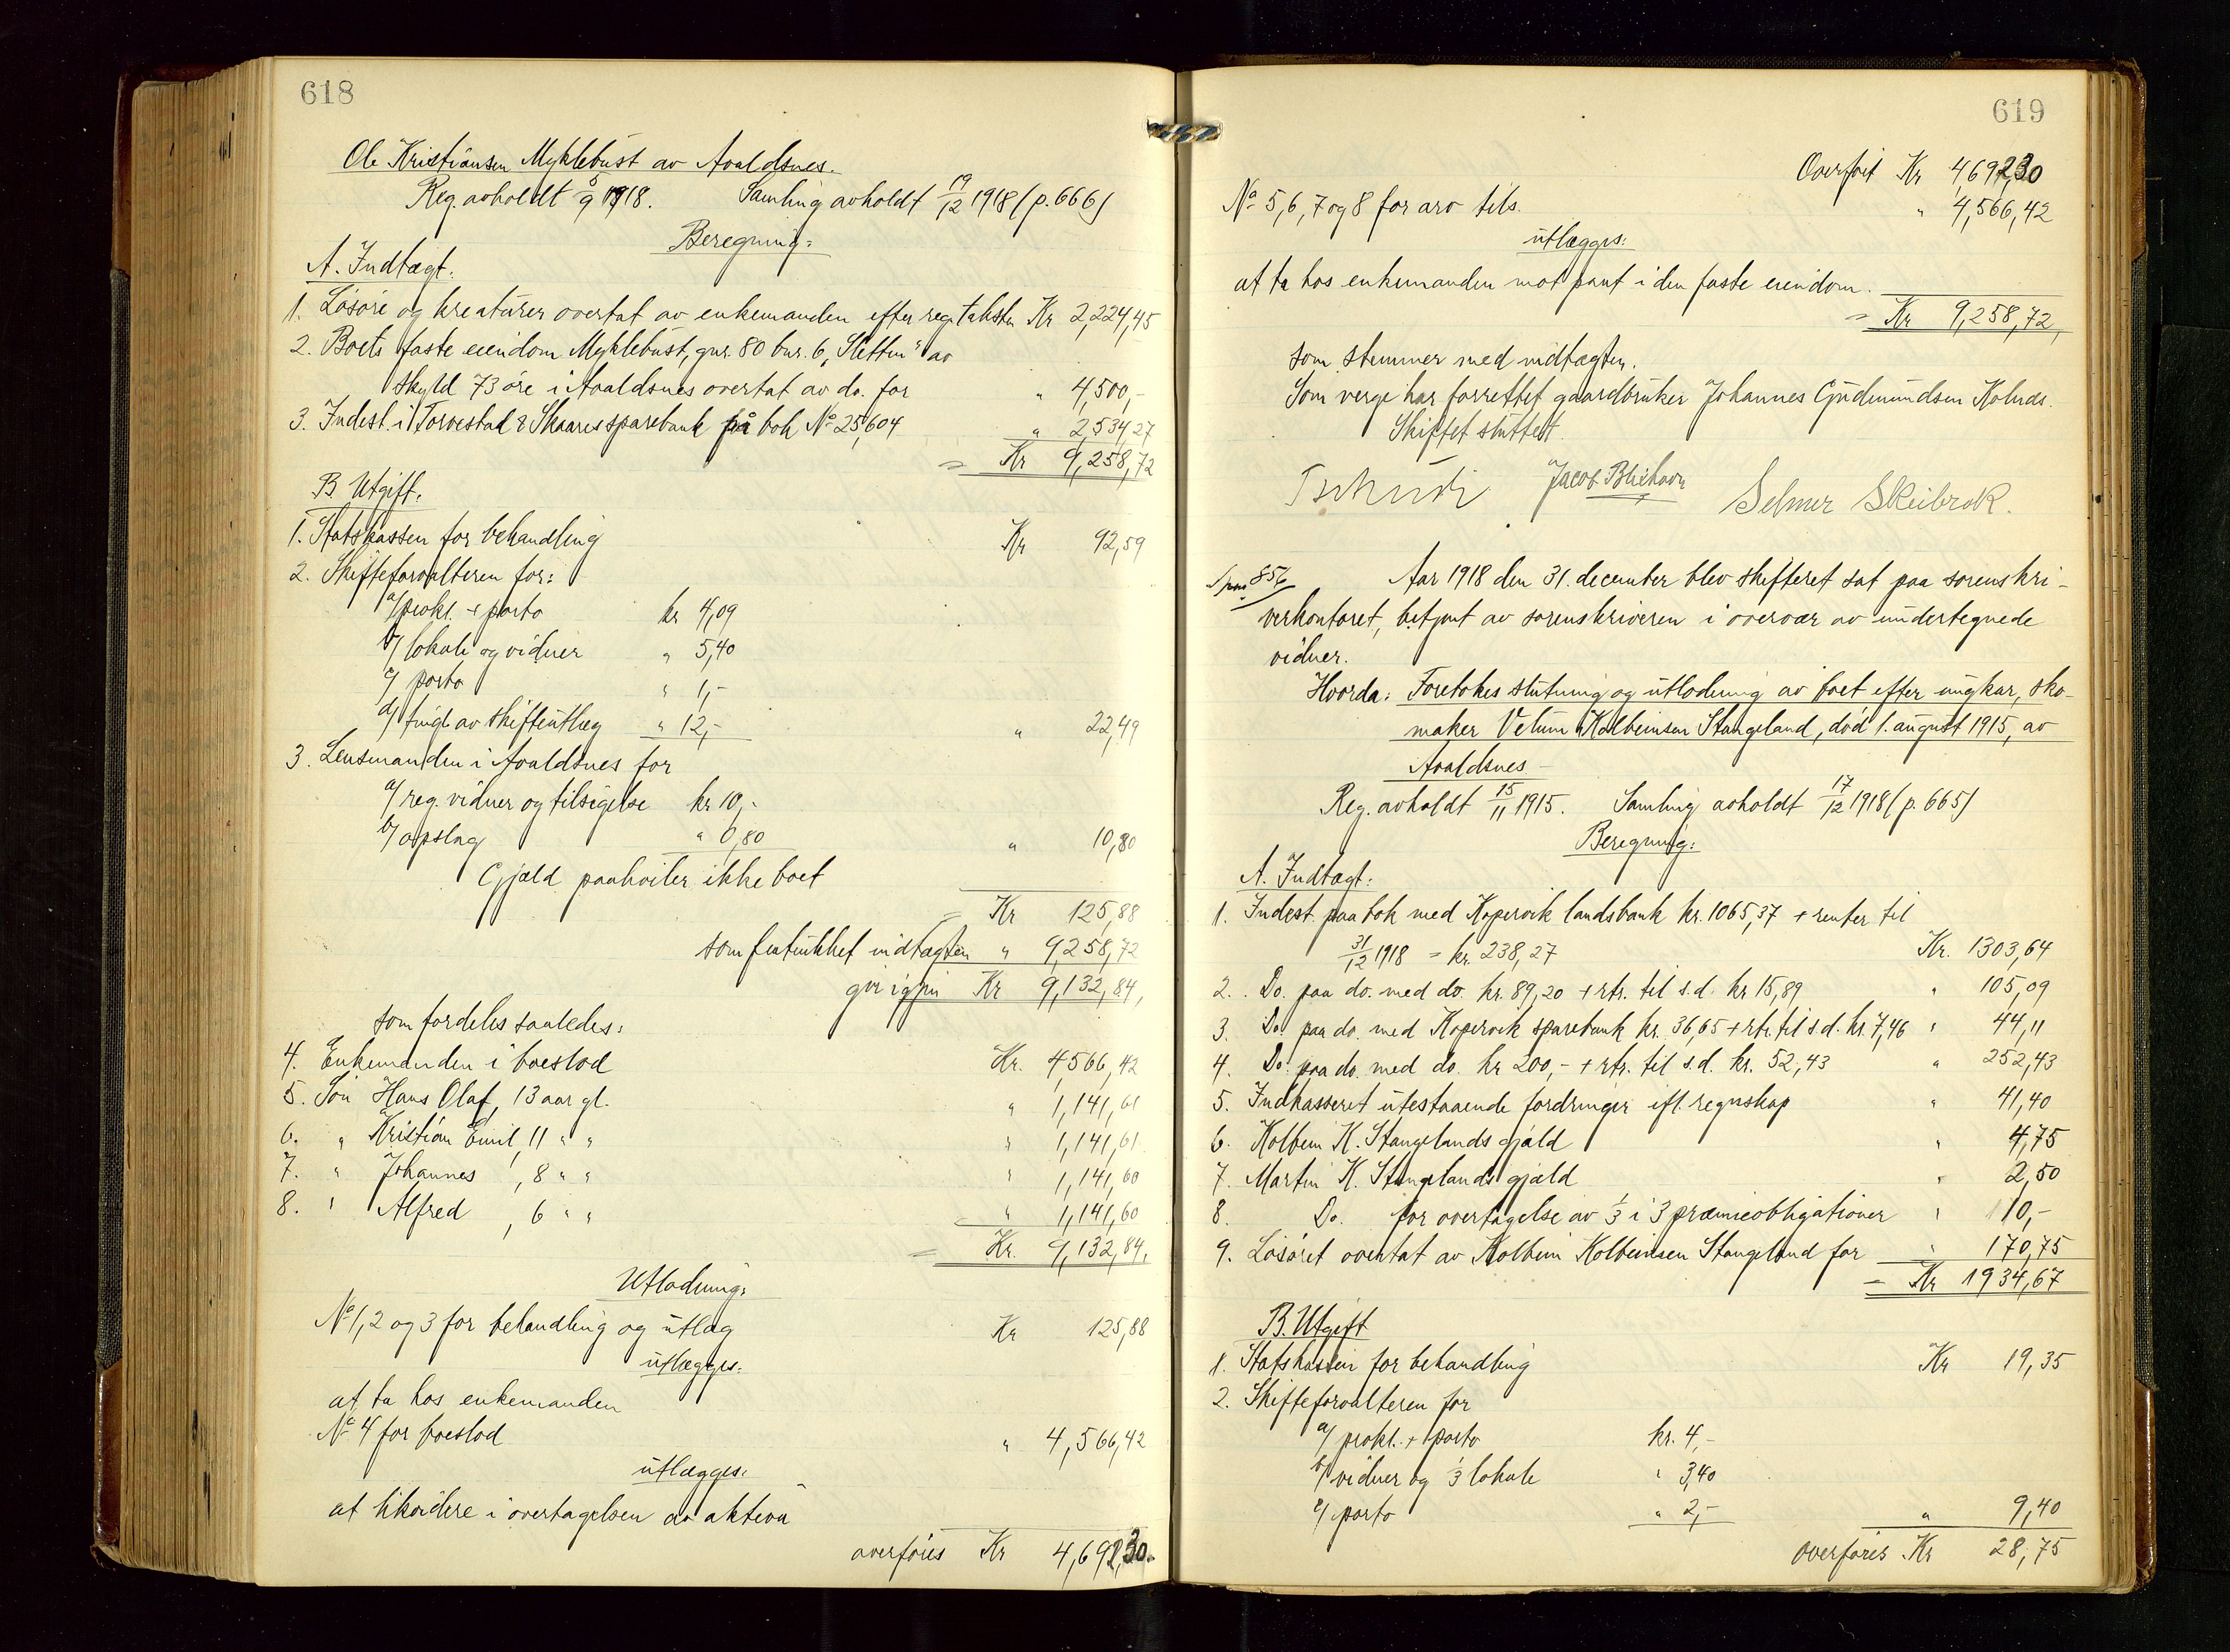 618
Ole Kristiansen Myklebust av Avaldsnes.
Reg. avholdt 5/9 1918. Samling avholdt 19/12 1918 (p. 666)
Beregning:
A. Indtægt:
1. Løsøre og kreaturer overtat av enkemanden efter reg. taksten Kr 2,224,45
2. Boets faste eiendom Myklebust, gnr. 80 bnr. 6 "Sletten" av
skyld 73 øre i Avaldsnes overtat av do. for " 4,500,-
3. Indest. i Torvestad & Skaares sparebank på bok No 25,604 " 2,534,27
= Kr 9,258,72
B. Utgift.
1. Statskassen for behandling Kr 92,59
2. Skifteforvalteren for:
a/ prokl. + porto kr 4,09
b/ lokale og vidner " 5,40
c/ porto " 1,-
d/ tingl. av skifteutlæg " 12,- " 22,49
3. Lensmanden i Avaldsnes for
a/ reg. vidner og tilsigelse kr 10,-
b/ opslag " 0,80 " 10,80
Gjæld paahviler ikke boet
= Kr 125,88
som fratrukket indtægten " 9,258,72
gir igjen Kr 9,132,84,
som fordeles saaledes:
4. Enkemanden i boeslod Kr. 4566,42
5. Søn Hans Olaf, 13 aar gl. " 1,141,61
6. " Kristian Emil, 11 " " " 1,141,61
7. " Johannes, 8 " " " 1,141,60
8. " Alfred, 6 " " " 1,141,60
= Kr. 9,132,84,
Utlodning:
No 1, 2 og 3 for behandling og utlæg Kr 125,88
utlægges:
at ta hos enkemanden
No 4 for boeslod " 4,566,42
utlægges:
at likvidere i overtagelsen av aktiva
overføres Kr 4,692,30.
619
Overført Kr 4,692,30
No 5, 6, 7 og 8 for arv tils. " 4,566,42
utlægges:
at ta hos enkemanden mot pant i den faste eiendom.
= Kr 9,258,72,
som stemmer med indtægten.
Som verge har forrettet gaardbruker Johannes Gudmundsen Kolnes.
Skiftet sluttet.
Tschudi Jacob Blikhavn Selmer Skeibrok.
Aar 1918 den 31. december blev skifteret sat paa sorenskri-
verkontoret, betjent av sorenskriveren i overvær av undertegnede
vidner.
Hvorda: Foretokes slutning og utlodning av boet efter ungkar, sko-
maker Vetum Kolbeinsen Stangeland, død 1. august 1915, av
Avaldsnes -
Reg. avholdt 15/11 1915. Samling avholdt 17/12 1918 (p. 665)
Beregning:
A. Indtægt:
1. Indest. paa bok med Kopervik landsbank kr. 1065,37 + renter til
31/12 1918 = kr. 238,27 Kr. 1303,64
2. Do. paa do. med do. kr. 89,20 + rtr. til s.d. kr 15,89 " 105,09
3. Do. paa do. med Kopervik sparebank kr. 36,65 + rtr. til s.d. kr. 7,46 " 44,11
4. Do. paa do. med do. kr 200,- + rtr. til s.d. kr. 52,43 " 252,43
5. Indkasseret utestaaende fordringer ifl. regnskap " 41,40
6. Kolbein K. Stangelands gjæld " 4,75
7. Martin K. Stangelands gjæld " 2,50
8. Do. for overtagelse av 1/3 i 3 præmieobligationer " 10,-
9. Løsøret overtat av Kolbein Kolbeinsen Stangeland for " 170,75
= Kr 1934,67
B. Utgift
1. Statskassen for behandling Kr 19,35
2. Skifteforvalteren for
a/ prokl. + porto kr. 4,-
b/ vidner og 1/3 lokale " 3,40
c/ porto " 2,- " 9,40
overføres Kr 28,75